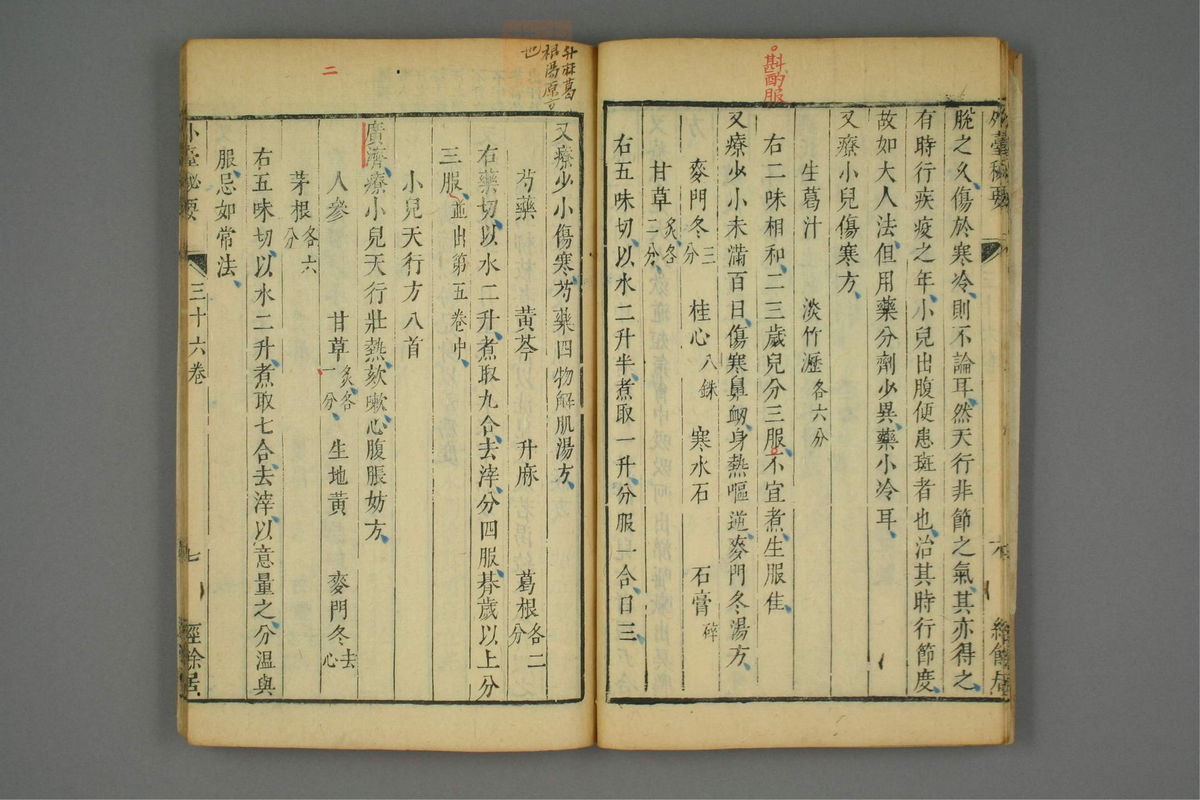 斟酌服
脫之久傷於寒冷則不論耳然天行非節之氣其亦得之
有時行疾疫之年小兒出腹便患斑者也治其時行節度
故如大人法但用藥分劑少異藥小冷耳
又療小兒傷寒方
生葛汁 淡竹瀝各六分
右二味相和二三歲兒分三服不宜煮生服佳
又療少小未滿百日傷寒鼻衂身熱嘔逆麥門冬湯方
麥門冬三分 桂心八銖 寒水石 石膏碎
甘草炙各二分
右五味切以水二升半煮取一升分服一合日三
升麻葛
根湯原方
也
又療少小傷寒芍藥四物解肌湯方
芍藥 黃芩 升麻 葛根各二分
右藥切以水二升煮取九合去滓分四服朞歲以上分
三服並出第五卷中
小兒天行方八首
二
廣濟療小兒天行壯熱欬嗽心腹脹妨方
人參 甘草炙各一分 生地黃 麥門冬去心
茅根各六分
右五味切以水二升煮取七合去滓以意量之分溫與
服忌如常法
三十六卷
七
經餘居